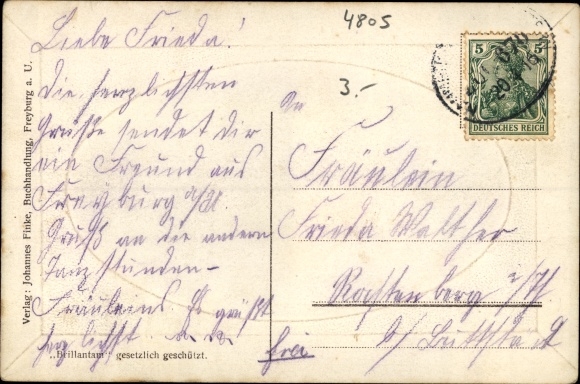 4805
3.-
Liebe Frieda!
Die herzlichsten
Grüße sendet dir
ein Freund aus
Freyburg a/U.
Gruß an die andern
Tanzstunden-
Fräuleins Es grüßt
herzlichst
An
Fräulein
Frieda Walther
Rastenberg i/Th.
b/ Buttstädt
frei
5 5
DEUTSCHES REICH
Verlag: Johannes Finke, Buchhandlung, Freyburg a. U.
„Brillantam“ gesetzlich geschützt.